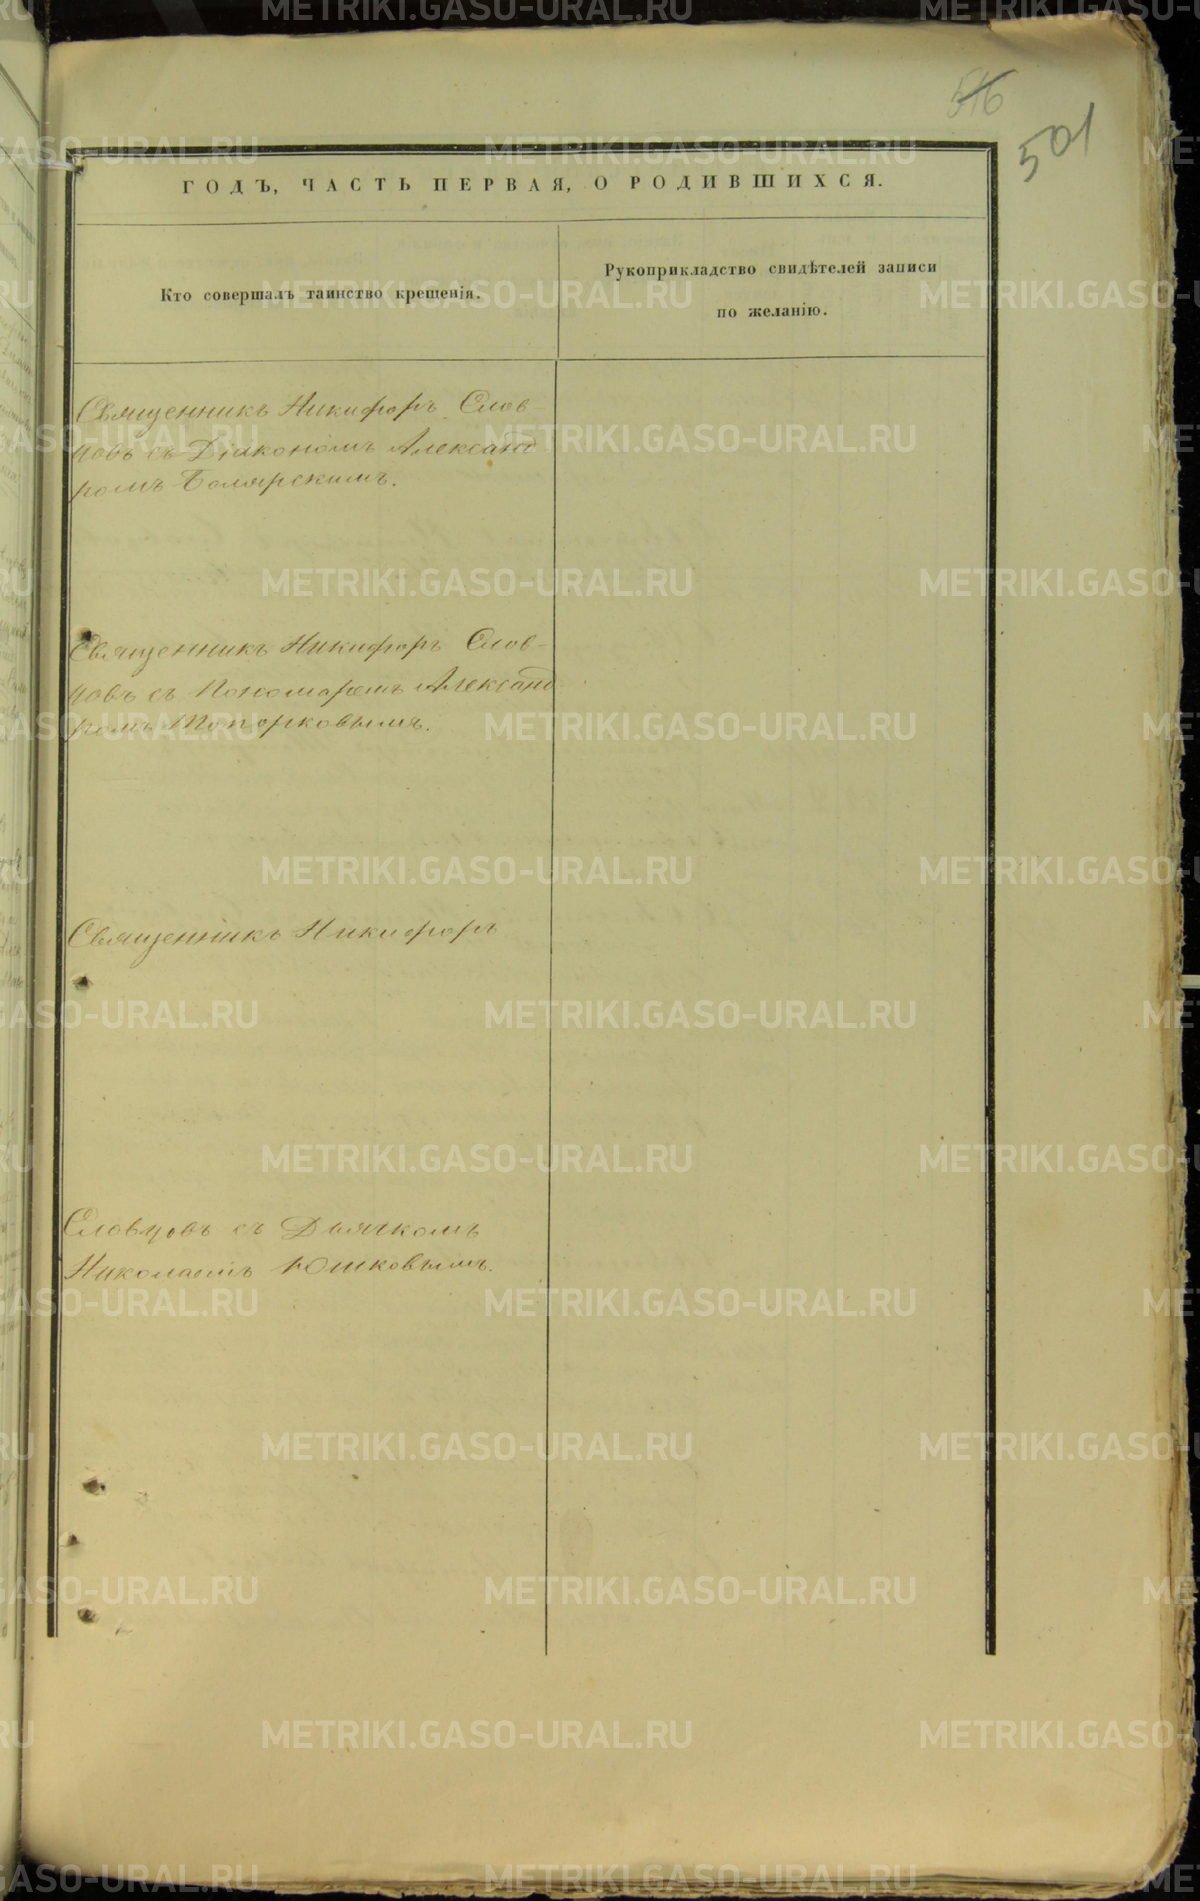 516
501
ГОДЪ, ЧАСТЬ ПЕРВАЯ, О РОДИВШИХСЯ.
Кто совершалъ таинство крещенія.
Рукоприкладство свидѣтелей записи
по желанію.
Священникъ Никифоръ Слов-
цовъ съ Діакономъ Александ
ромъ Болярскимъ.
Священникъ Никифоръ Слов-
цовъ съ Пономаремъ Александ
ромъ Топорковымъ.
Священникъ Никифоръ
Словцовъ съ Дьячкомъ
Николаемъ Юшковымъ.
METRIKI.GASO-URAL.RU